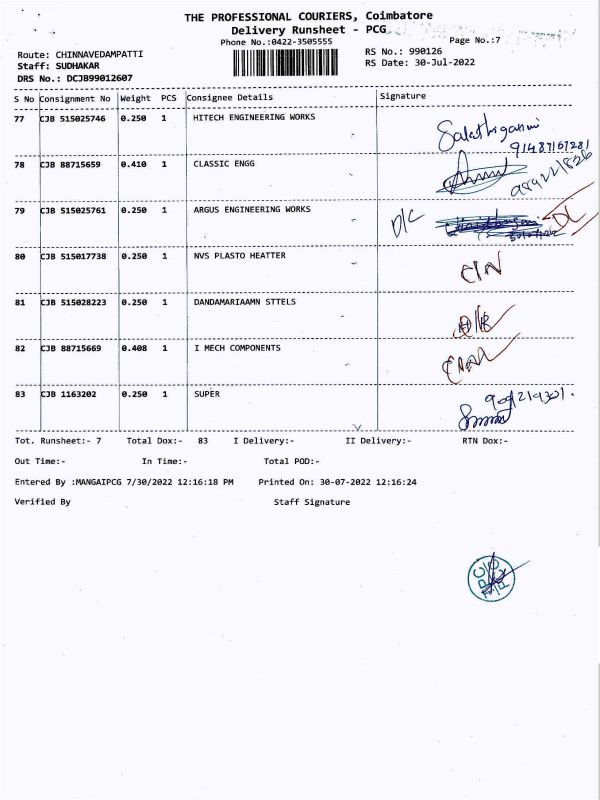 THE PROFESSIONAL COURIERS, Coimbatore
Delivery Runsheet - PCG
Phone No.:0422-3505555 Page No.:7
Route: CHINNAVEDAMPATTI RS No.: 990126
Staff: SUDHAKAR RS Date: 30-Jul-2022
DRS No.: DCJB99012607
S No Consignment No Weight PCS Consignee Details Signature
77 CJB 515025746 0.250 1 HITECH ENGINEERING WORKS
78 CJB 88715659 0.410 1 CLASSIC ENGG
79 CJB 515025761 0.250 1 ARGUS ENGINEERING WORKS D/C DL
80 CJB 515017738 0.250 1 NVS PLASTO HEATTER
81 CJB 515028223 0.250 1 DANDAMARIAAMN STTELS
82 CJB 88715669 0.408 1 I MECH COMPONENTS
83 CJB 1163202 0.250 1 SUPER
Tot. Runsheet:- 7 Total Dox:- 83 I Delivery:- II Delivery:- RTN Dox:-
Out Time:- In Time:- Total POD:-
Entered By :MANGAIPCG 7/30/2022 12:16:18 PM Printed On: 30-07-2022 12:16:24
Verified By Staff Signature